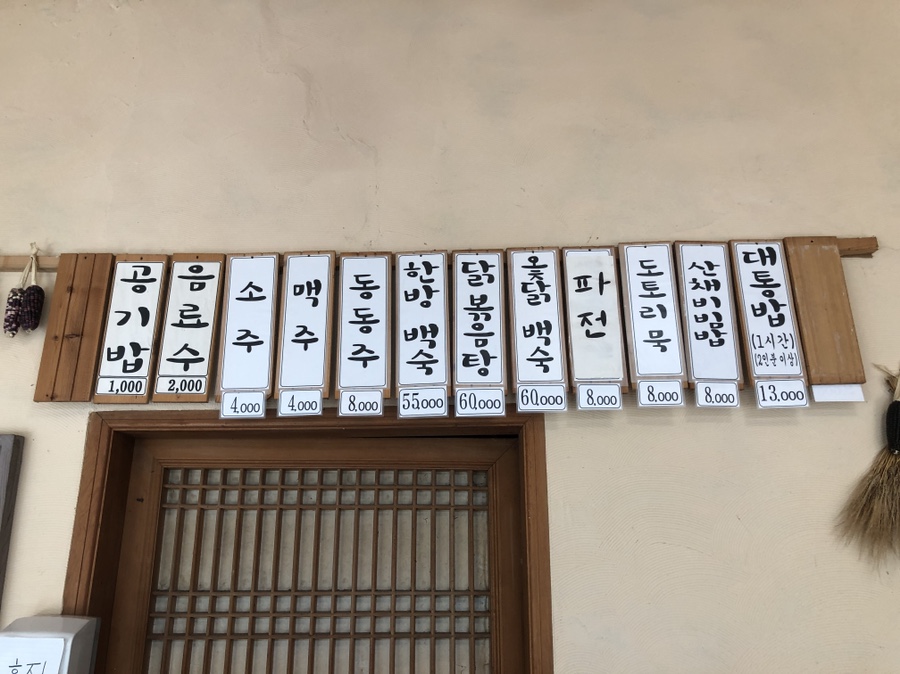 공기밥
1,000
음료수
2,000
소주
4,000
맥주
4,000
동동주
8,000
한방 백숙
55,000
닭볶음탕
60,000
옻닭 백숙
60,000
파전
8,000
도토리묵
8,000
산채비빔밥
8,000
대통밥
(1시간)
(2인분이상)
13,000
휴지